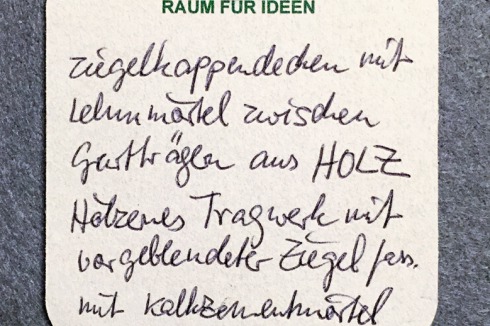 RAUM FÜR IDEEN
Ziegelkappendecken mit
Lehmmörtel zwischen
Gurtträgen aus HOLZ
Hölzernes Tragwerk mit
vorgeblendeter Ziegelfass.
mit Kalkzementmörtel